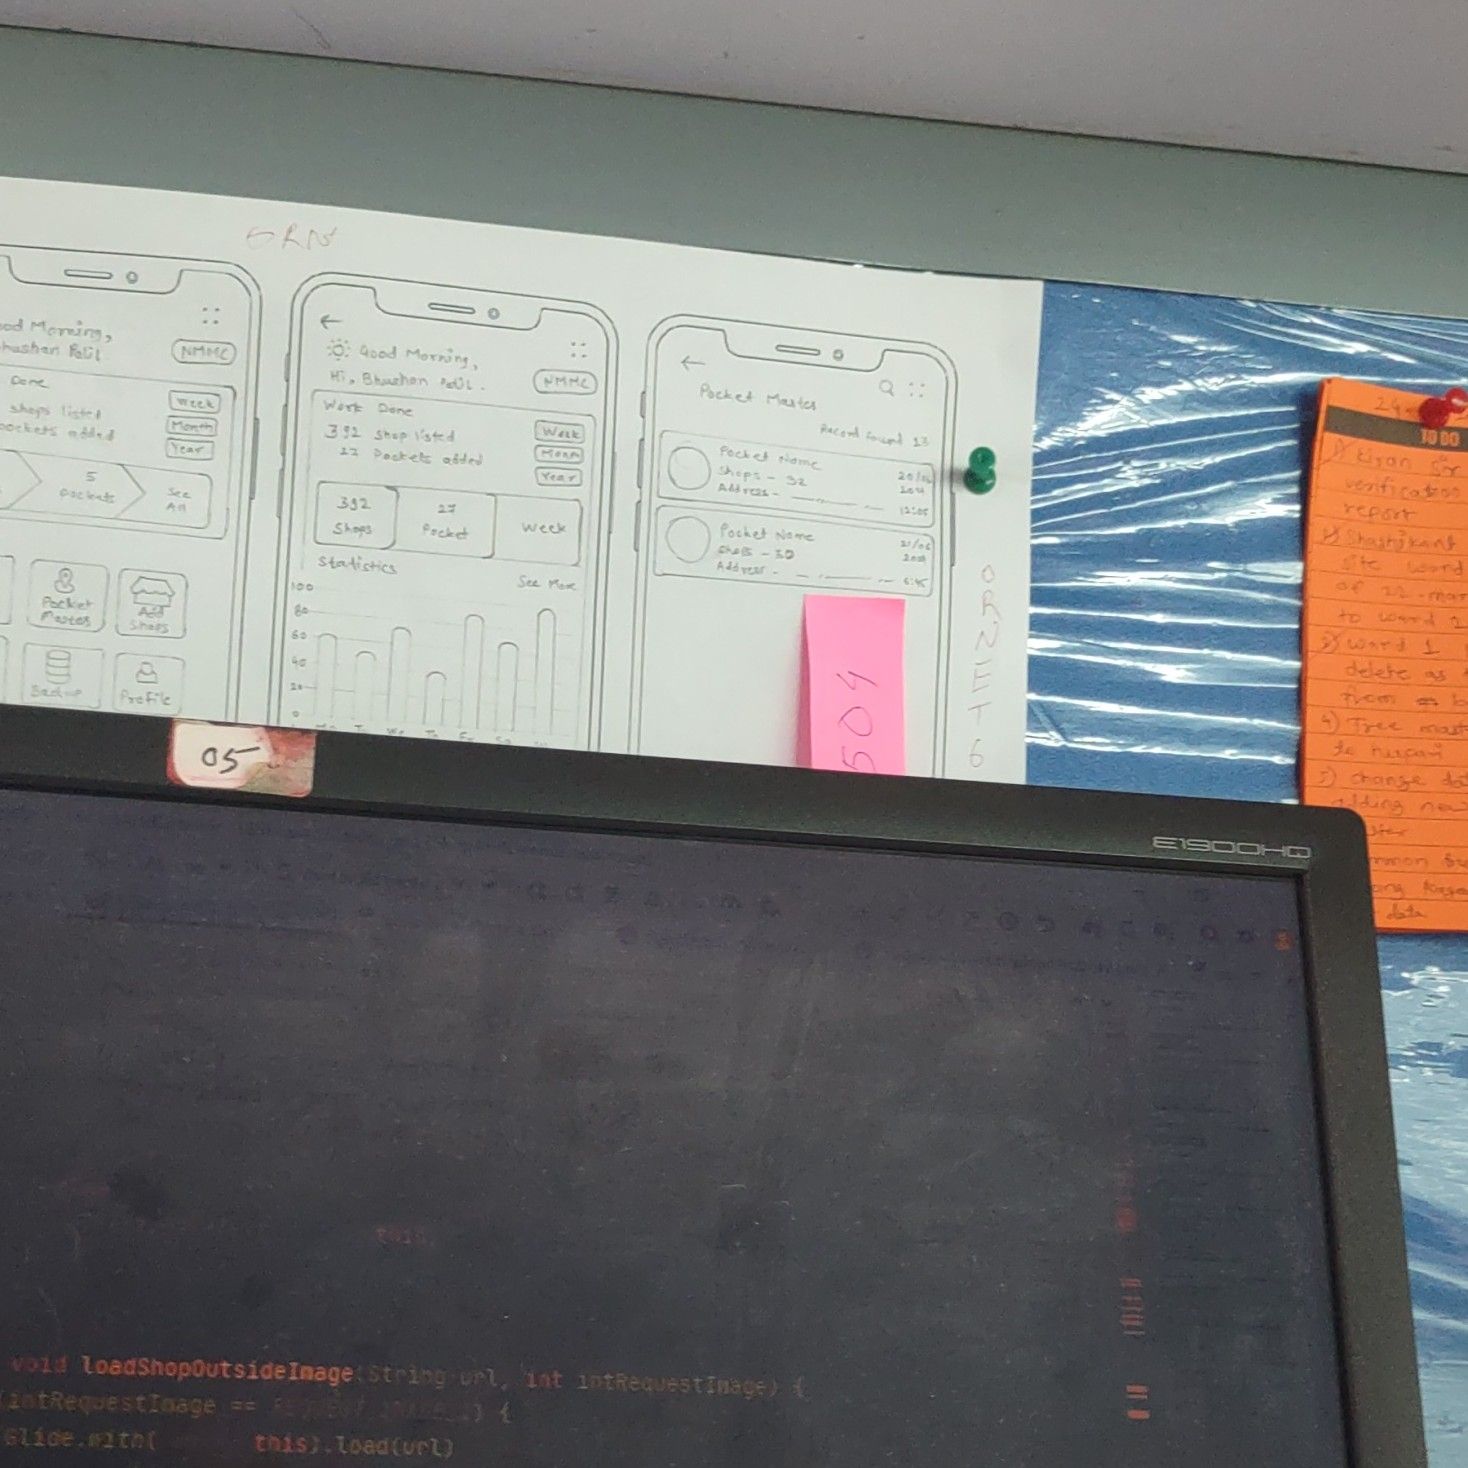 GRN
Good Morning,
Bhushan Patil
NMMC
Done
shops listed
pockets added
Week
Month
Year
5
pockets
See
All
Pocket
Master
Add
Shops
Backup
Profile
Good Morning,
Hi, Bhushan Patil.
NMMC
Work Done
392 Shop listed
27 Pockets added
Week
Month
Year
392
Shops
27
Pocket
Week
Statistics
See More
100
80
60
40
20
0
Pocket Master
Record found 13
Pocket Name
Shops - 32
Address -
12:05
Pocket Name
Shops - 30
Address -
6:45
ORNET6
504
05
E1900HQ
TO DO
1) Kiran Sir
verification
report
2) Shashikant
site word
of 22-mar
to word 2
3) word 1
delete as
from
4) Tree mast
5) change dat
adding new
data
void loadShopOutsideImage(String url, int intRequestImage) {
(intRequestImage == ) {
Glide.with( this).load(url)